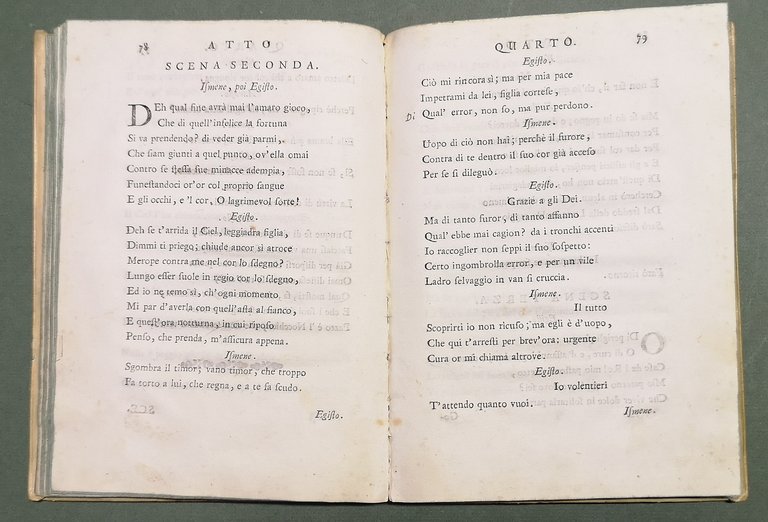 78
ATTO
SCENA SECONDA.
Ismene, poi Egisto.
DEh qual fine avrà mai l'amaro gioco,
Che di quell'infelice la fortuna
Si va prendendo? di veder già parmi,
Che siam giunti a quel punto, ov'ella omai
Contro se stessa sue minacce adempia,
Funestandoci or'or col proprio sangue
E gli occhi, e 'l cor. O lagrimevol sorte!
Egisto.
Deh se t'arrida il Ciel, leggiadra figlia,
Dimmi ti priego; chiude ancor sì atroce
Merope contra me nel cor lo sdegno?
Lungo esser suole in regio cor lo sdegno,
Ed io ne temo sì, ch'ogni momento
Mi par d'averla con quell'asta al fianco,
E quest'ora notturna, in cui riposo
Penso, che prenda, m'assicura appena.
Ismene.
Sgombra il timor; vano timor, che troppo
Fa torto a lui, che regna, e a te fa scudo.
Egisto.
QUARTO.
79
Egisto.
Ciò mi rincora sì; ma per mia pace
Impetrami da lei, figlia cortese,
Di
Qual' error, non so, ma pur perdono.
Ismene.
Uopo di ciò non hai; perchè il furore,
Contra di te dentro il suo cor già acceso
Per se si dileguò.
Egisto.
Grazie a gli Dei.
Ma di tanto furor, di tanto affanno
Qual' ebbe mai cagion? da i tronchi accenti
Io raccoglier non seppi il suo sospetto:
Certo ingombrolla error, e per un vile
Ladro selvaggio in van si cruccia.
Ismene.
Il tutto
Scoprirti io non ricuso; ma egli è d'uopo,
Che qui t'arresti per brev'ora: urgente
Cura or mi chiama altrove.
Egisto.
Io volentieri
T'attendo quanto vuoi.
Ismene.